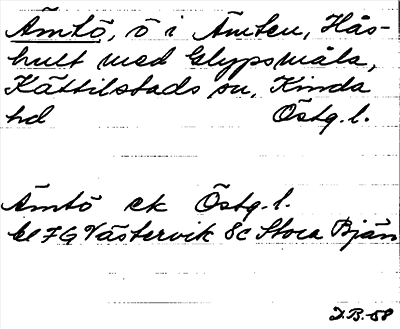 Ämtö, ö i Ämten, Hås-
hult med Glypsmåla,
Kättilstads sn, Kinda
hd Östg.l.
Ämtö ek Östg.l.
bl 7G Västervik 8c Stora Bjän
I.B.58